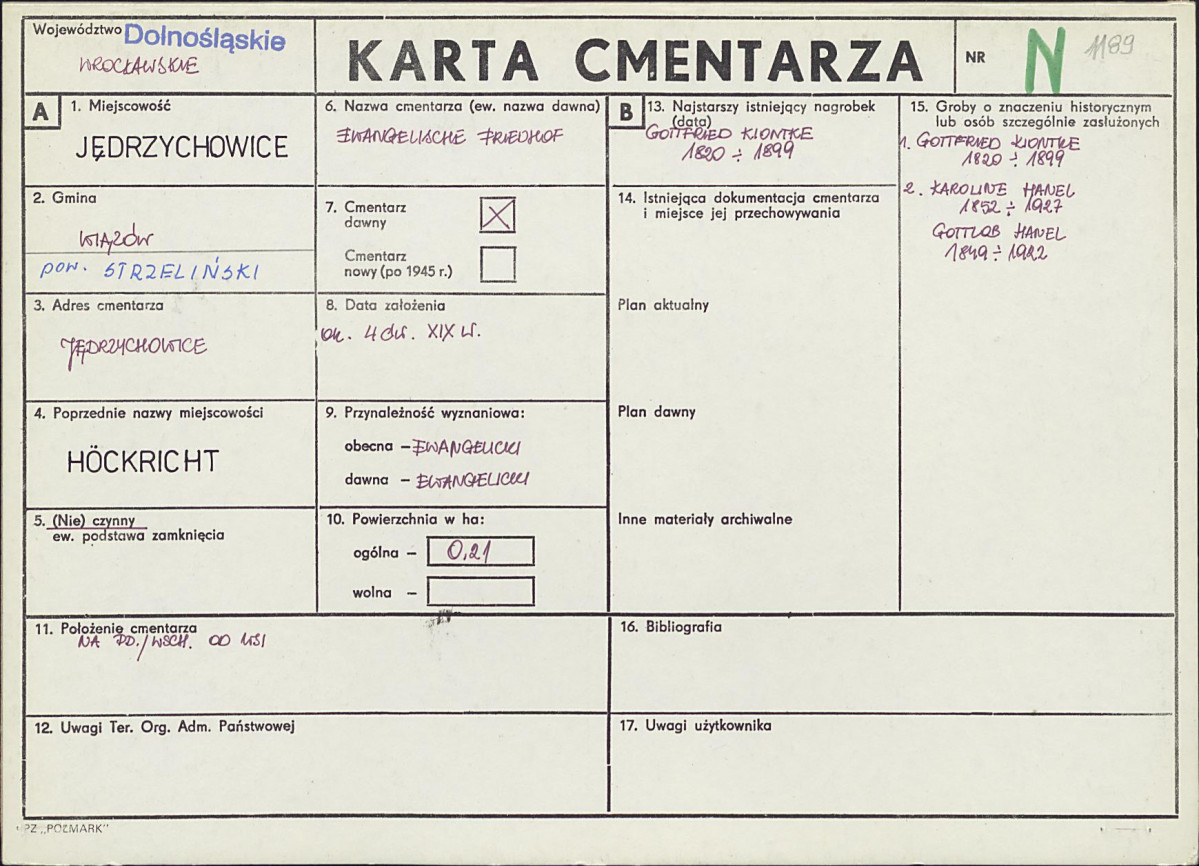 Województwo Dolnośląskie
WROCŁAWSKIE
KARTA CMENTARZA
NR N 1189
A
1. Miejscowość
JĘDRZYCHOWICE
2. Gmina
WIĄZÓW
pow. STRZELIŃSKI
3. Adres cmentarza
JĘDRZYCHOWICE
4. Poprzednie nazwy miejscowości
HÖCKRICHT
5. (Nie) czynny
ew. podstawa zamknięcia
6. Nazwa cmentarza (ew. nazwa dawna)
EWANGELISCHE FRIEDHOF
7. Cmentarz
dawny
Cmentarz
nowy (po 1945 r.)
8. Data założenia
ok. 4 ćw. XIX w.
9. Przynależność wyznaniowa:
obecna – EWANGELICKI
dawna – EWANGELICKI
10. Powierzchnia w ha:
ogólna – 0,21
wolna –
11. Położenie cmentarza
NA PD./WSCH. OD WSI
12. Uwagi Ter. Org. Adm. Państwowej
B
13. Najstarszy istniejący nagrobek
(data)
GOTTFRIED KIONTKE
1820 ÷ 1899
14. Istniejąca dokumentacja cmentarza
i miejsce jej przechowywania
Plan aktualny
Plan dawny
Inne materiały archiwalne
15. Groby o znaczeniu historycznym
lub osób szczególnie zasłużonych
1. GOTTFRIED KIONTKE
1820 ÷ 1899
2. KAROLINE HANEL
1852 ÷ 1927
GOTTLOB HANEL
1849 ÷ 1922
16. Bibliografia
17. Uwagi użytkownika
PZ „POLMARK"